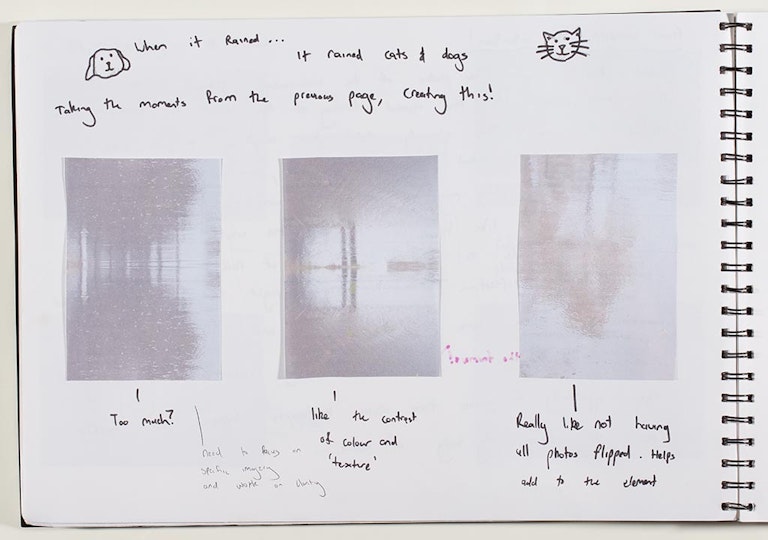 When it Rained...
It rained cats & dogs
Taking the moments from the previous page, creating this!
Too much?
need to focus on
specific imagery
and work on
like the contrast
of colour and
'texture'
Really like not having
all photos flipped. Helps
add to the element